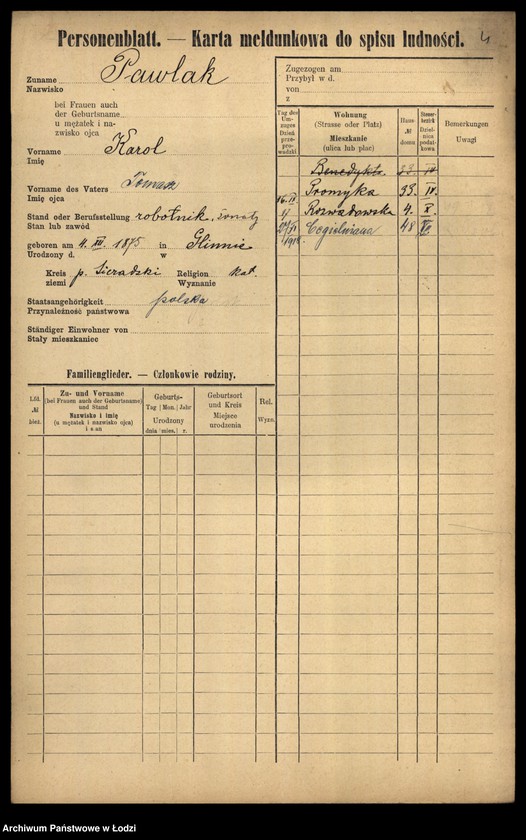 Personenblatt. — Karta meldunkowa do spisu ludności.
4
Zuname
Nazwisko
Pawlak
bei Frauen auch
der Geburtsname
u mężatek i na-
zwisko ojca
Vorname
Imię
Karol
Vorname des Vaters
Imię ojca
Tomasz
Stand oder Berufsstellung
Stan lub zawód
robotnik, żonaty
geboren am 4. XII. 1875 in Glinnie
Urodzony d. w
Kreis
ziemi
p. Sieradzki
Religion
Wyznanie
kat.
Staatsangehörigkeit
Przynależność państwowa
polska
Ständiger Einwohner von
Stały mieszkaniec
Familienglieder. — Członkowie rodziny.
Lfd.
№
bież.
Zu- und Vorname
(bei Frauen auch der Geburtsname)
und Stand
Nazwisko i imię
(u mężatek i nazwisko ojca)
i stan
Geburts-
Tag Mon. Jahr
Urodzony
dnia mies. r.
Geburtsort
und Kreis
Miejsce
urodzenia
Rel.
Wyzn.
Zugezogen am
Przybył w d.
von
z
Tag des
Um-
zuges
Dzień
prze-
prowadzki
Wohnung
(Strasse oder Platz)
Mieszkanie
(ulica lub plac)
Haus-
№
domu
Steuer-
bezirk
Dziel-
nica
podat-
kowa
Bemerkungen
Uwagi
Benedykta 33. IV
Promyka 33. IV.
Rozwadowska 4. X.
1918 Cegielniana 48
Archiwum Państwowe w Łodzi